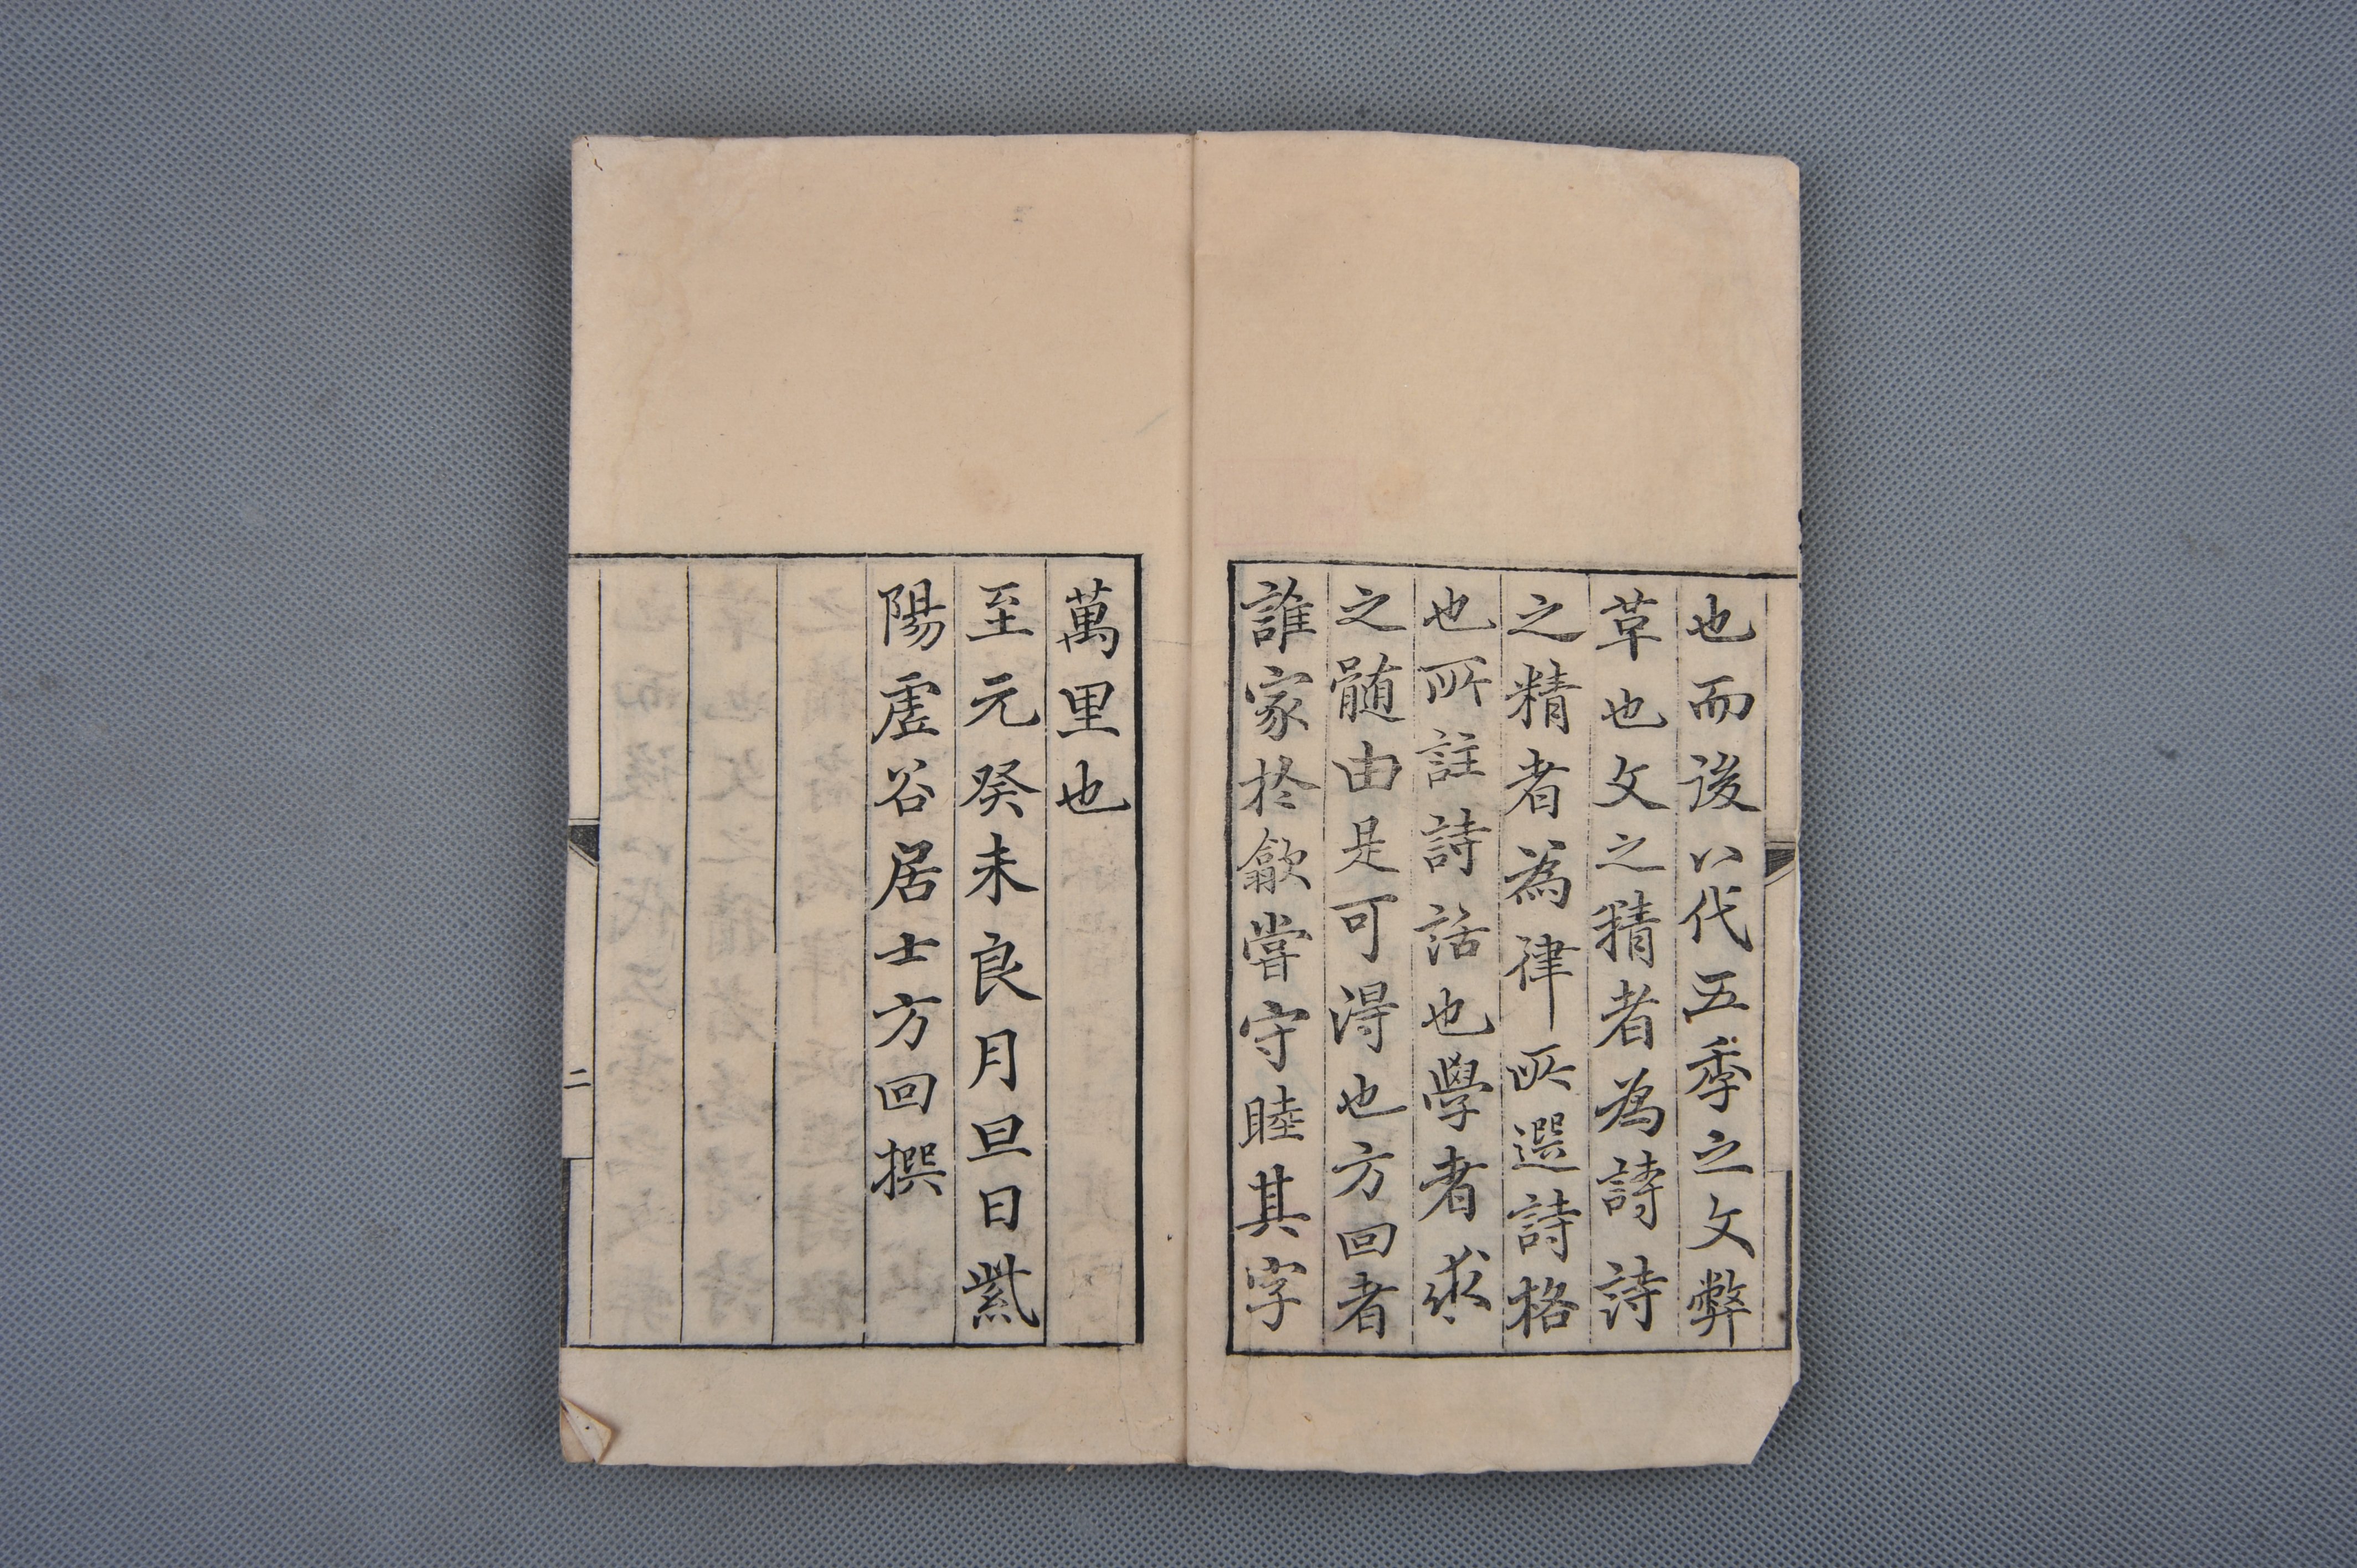 也而後八代五季之文弊
草也文之精者為詩詩
之精者為律所選詩格
也所註詩話也學者求
之髄由是可淂也方回者
誰家於歙嘗守睦其字
萬里也
至元癸未良月旦日紫
陽虛谷居士方回撰
二